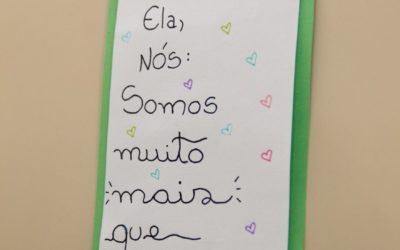 Ela,
Nós:
Somos
muito
mais
que